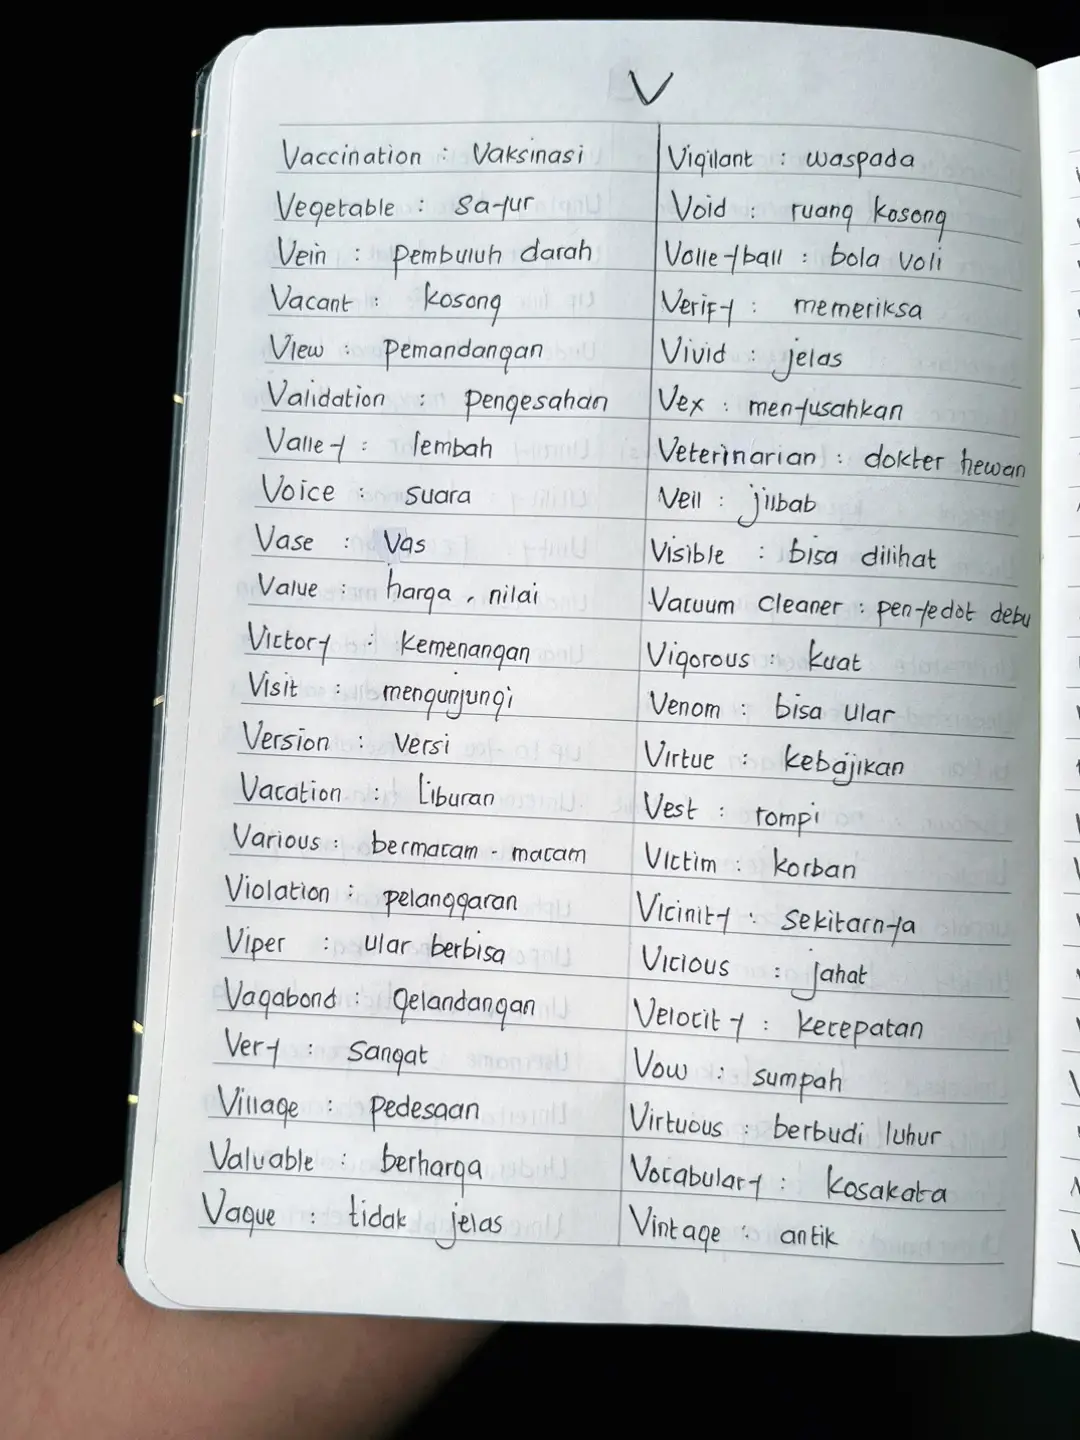 V
Vaccination : Vaksinasi
Vegetable : sayur
Vein : pembuluh darah
Vacant : kosong
View : pemandangan
Validation : pengesahan
Valley : lembah
Voice : suara
Vase : Vas
Value : harga, nilai
Victory : kemenangan
Visit : mengunjungi
Version : versi
Vacation : Liburan
Various : bermacam-macam
Violation : pelanggaran
Viper : ular berbisa
Vagabond : gelandangan
Very : sangat
Village : pedesaan
Valuable : berharga
Vague : tidak jelas
Vigilant : waspada
Void : ruang kosong
Volleyball : bola voli
Verify : memeriksa
Vivid : jelas
Vex : menyusahkan
Veterinarian : dokter hewan
Veil : jilbab
Visible : bisa dilihat
Vacuum Cleaner : penyedot debu
Vigorous : kuat
Venom : bisa ular
Virtue : kebajikan
Vest : rompi
Victim : korban
Vicinity : sekitarnya
Vicious : jahat
Velocity : kecepatan
Vow : sumpah
Virtuous : berbudi luhur
Vocabulary : kosakata
Vintage : antik